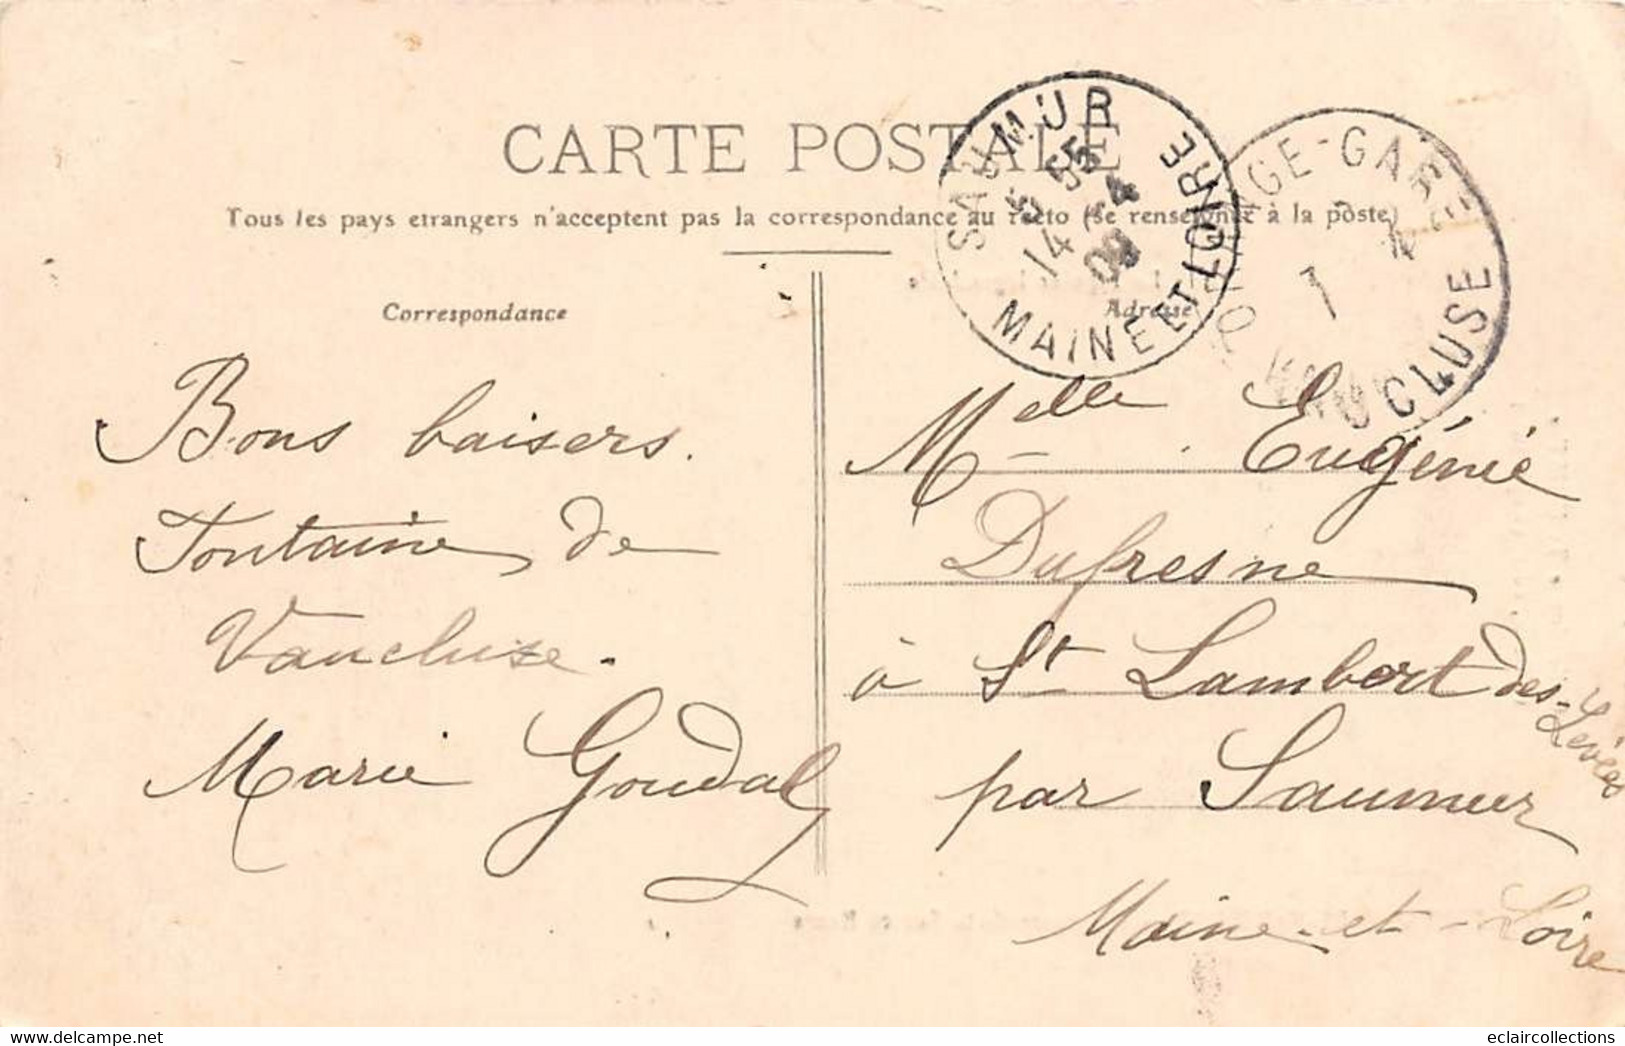 CARTE POSTALE
Tous les pays etrangers n'acceptent pas la correspondance au recto (se renseigner à la poste)
Correspondance
Adresse
SAUMUR
5 55
14 - 4
09
MAINE ET LOIRE
GE-GARE
VAUCLUSE
Bons baisers.
Fontaine de
Vaucluse.
Marie Goudal
Melle Eugénie
Dufresne
à St Lambert des-Levées
par Saumur
Maine-et-Loire
www.delcampe.net
eclaircollections